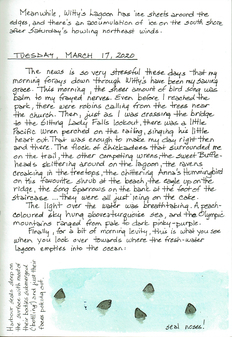 Meanwhile, Witty's Lagoon has ice sheets around the
edges, and there's an accumulation of ice on the south shore
after Saturday's howling northeast winds.
TUESDAY, MARCH 17, 2020
The news is so very stressful these days that my
forays down through Witty's have been my saving
grace. This morning, the sheer amount of bird song was
balm to my frayed nerves. Even before I reached the
park, there were robins calling from the trees near
the church. Then, just as I was crossing the bridge
to the Sitting Lady Falls lookout, there was a little
Pacific Wren perched on the railing, singing his little
heart out. That was enough to make my day right then
and there. The flock of chickadees that surrounded me
on the trail, the other competing wrens, the sweet Buffle-
heads skittering around on the lagoon, the ravens
croaking in the treetops, the chittering Anna's Hummingbird
on his favourite shrub at the beach, the eagle up on the
ridge, the song sparrows on the bank at the foot of the
staircase ... they were all just icing on the cake.
The light over the water was breathtaking. A peach-
coloured sky hung above turquoise sea, and the Olympic
mountains ranged from pale to dark pinky-purple.
Finally, for a bit of morning levity, this is what you see
when you look over towards where the fresh-water
lagoon empties into the ocean:
Harbour seals sleep on
the surface with
their bodies submerged
and just their
noses poking out.
seal noses!